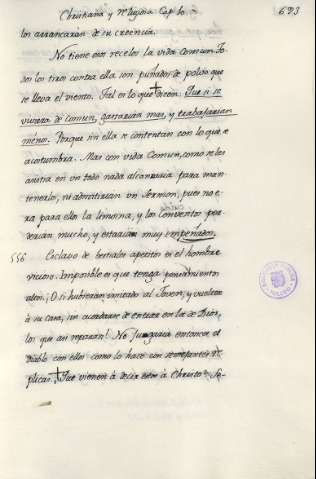 Christiana y 623
los arrancarán de su creencia.
No tiene esos recelos la vida comun. To-
dos los tiros contra ella son puñados de polvo que
se lleva el viento. Tal es lo que dicen. Que si se
viviera de comun, ganarian mas, y trabajarian
menos. Porque sin ella se contentan con lo que se
acostumbra. Mas con vida comun, como se les
asista en un todo nada alcanzaria para man-
tenerlos, ni admitirian un Sermon, pues no e-
ra para ellos la limosna, y los Conventos per-
derian mucho, y estarian muy empeñados.
556 Esclavo de bestiales apetitos es el hombre
vicioso. Imposible es que tenga pensamientos
altos. O si hubieran imitado al Joven, y vueltose
á su casa, sin acordarse de entrar en la de Dios,
los que asi opinan! No Jugaria entonces el
Diable con ellos como lo hace con semejantes re-
plicas. Que vienen á decir estos á Christo: Se-